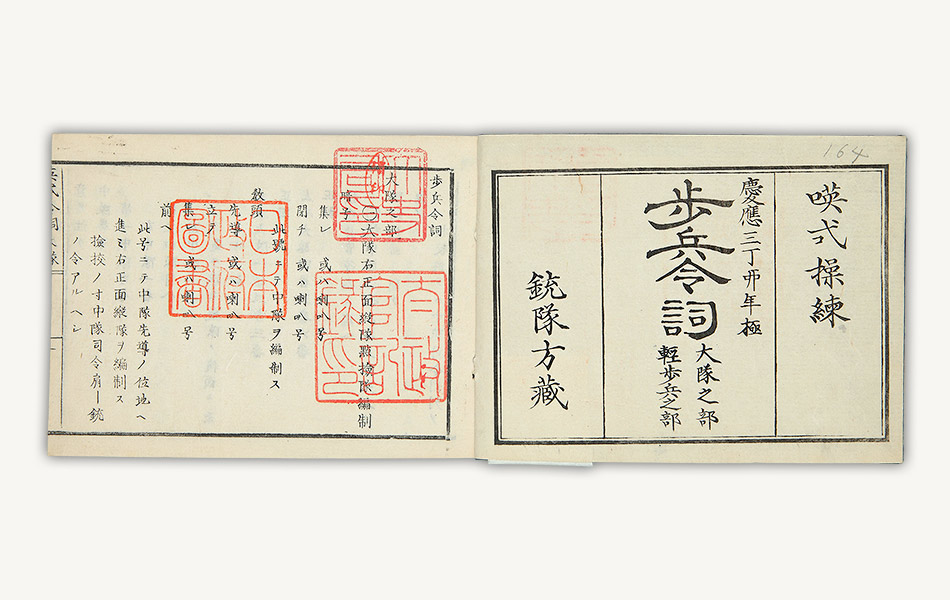 164
暎式操練
慶應三丁夘年極
步兵令詞
大隊之部
輕步兵之部
銃隊方藏
步兵令詞
大隊之部
○大隊右正面縱隊點撿隊編制
集レ 或ハ喇叭号
閉チ 或ハ喇叭号
此號ニテ中隊ヲ編制ス
敎頭
先導 或ハ喇叭号
立テ
集レ 或ハ喇叭号
前ヘ
此号ニテ中隊先導ノ位地ヘ
進ミ右正面縱隊ヲ編制ス
撿挍ノ寸中隊司令肩ー銃
ノ令アルヘシ